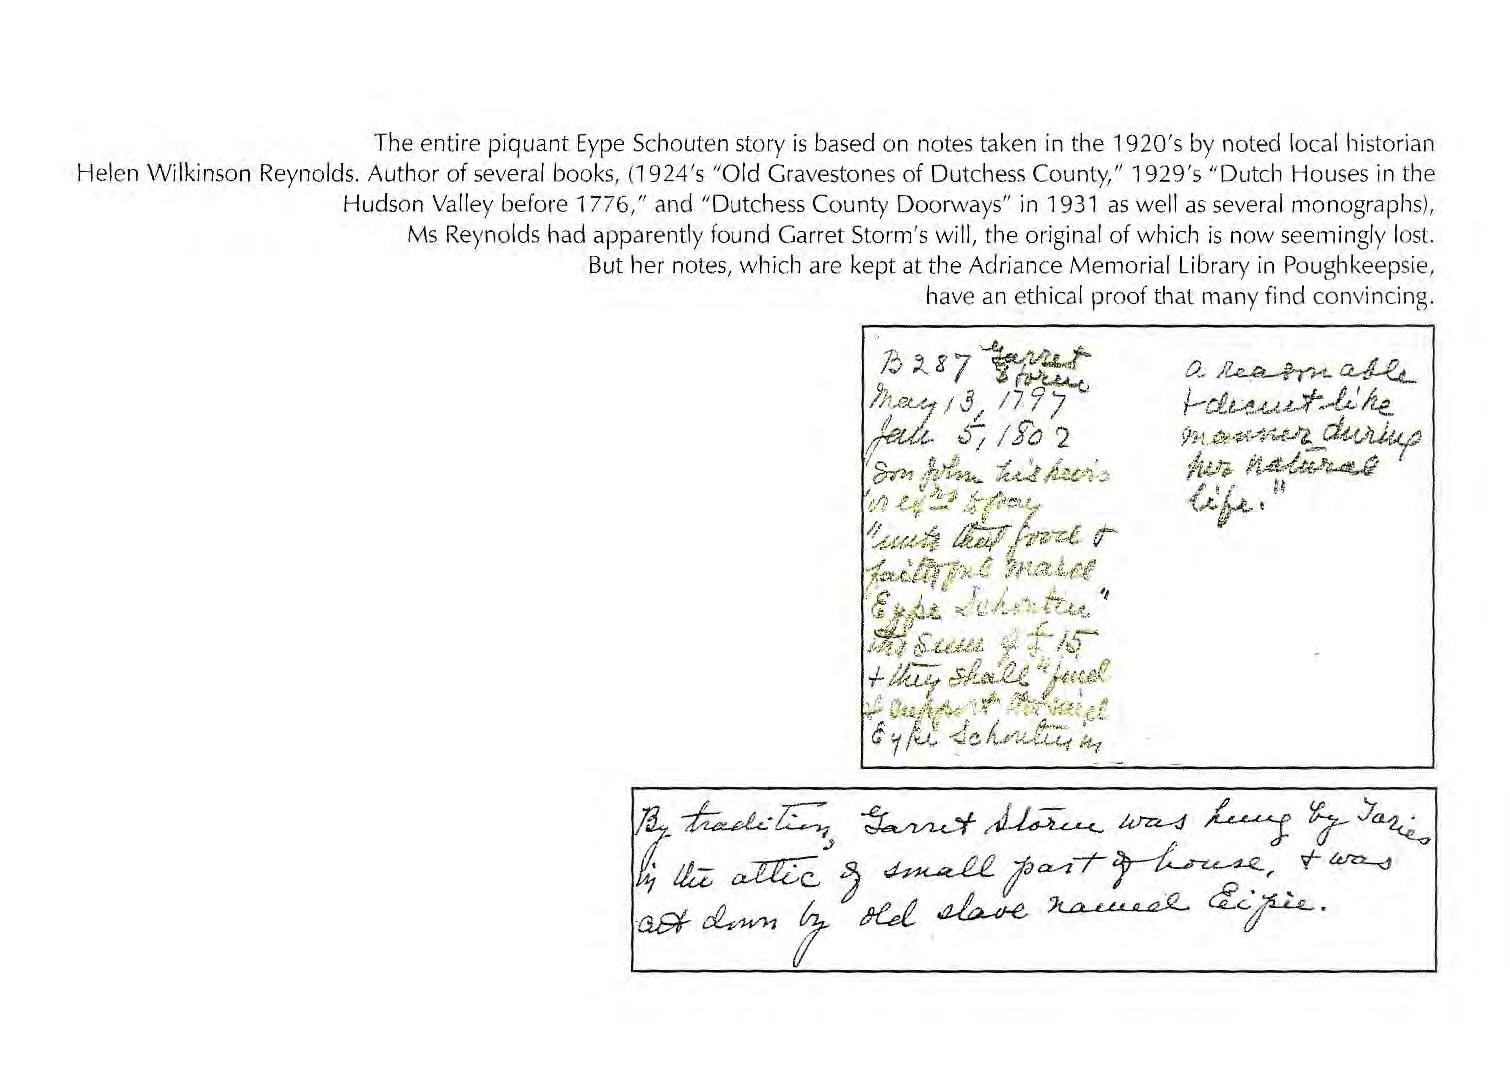 The entire piquant Eype Schouten story is based on notes taken in the 1920's by noted local historian
Helen Wilkinson Reynolds. Author of several books, (1924's "Old Gravestones of Dutchess County," 1929's "Dutch Houses in the
Hudson Valley before 1776," and "Dutchess County Doorways" in 1931 as well as several monographs),
Ms Reynolds had apparently found Garret Storm's will, the original of which is now seemingly lost.
But her notes, which are kept at the Adriance Memorial Library in Poughkeepsie,
have an ethical proof that many find convincing.
B 287 Garret
Storm
May 13, 1797
Jan. 5, 1802
Son John his heirs
or to pay
"unto that good &
faithful maid
Eype Schouten"
the sum of £15
+ they shall "find
& support the said
Eype Schouten in
a reasonable
+ decent like
manner during
her natural
life."
By tradition, Garret Storm was hung by Tories
in the attic of small part of house, + was
cut down by old slave named Eipie.